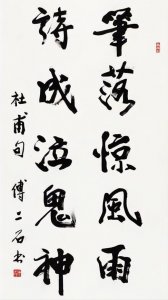 筆落惊風雨
詩成泣鬼神
杜甫句 傅二石书